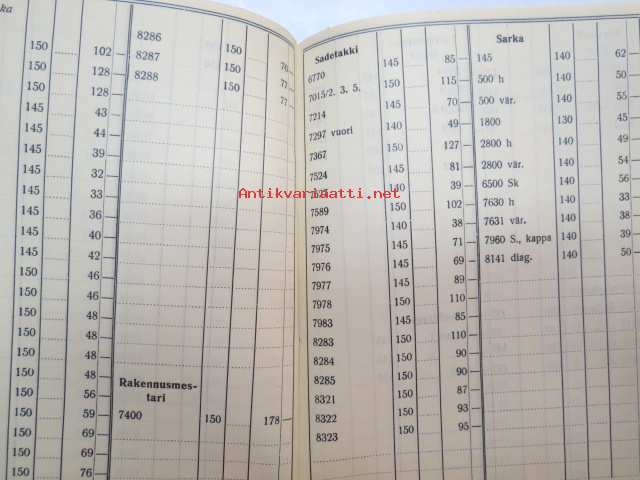 ka
150 102—
150 128—
150 128—
145 43
145 44
145 39
145 32
145 33
145 36
145 40
145 42
150 46
150 46
150 48
150 48
150 48
150 48
150 56
150 59
150 69
150 69
150 76
8286 150 76—
8287 150 77—
8288 150 77—
Rakennusmes-
tari
7400 150 178—
Sadetakki
6770 145 85—
7015/2. 3. 5. 150 115—
7214 145 70—
7297 vuori 140 49—
7367 150 127—
7524 145 81—
7525 140 39—
7589 150 102—
7974 140 38—
7975 145 71—
7976 145 69—
7977 150 89—
7978 150 110—
7983 145 85—
8283 150 110—
8284 150 90—
8285 150 90—
8321 150 87—
8322 150 93—
8323 150 95—
Sarka
145 140 62
500 h 140 50
500 vär. 140 55
1800 130 45
2800 h 140 50
2800 vär. 140 54
6500 Sk 140 46
7630 h 140 49
7631 vär. 140 53
7960 S., kappa 140 39
8141 diag. 140 50
Antikvariaatti.net